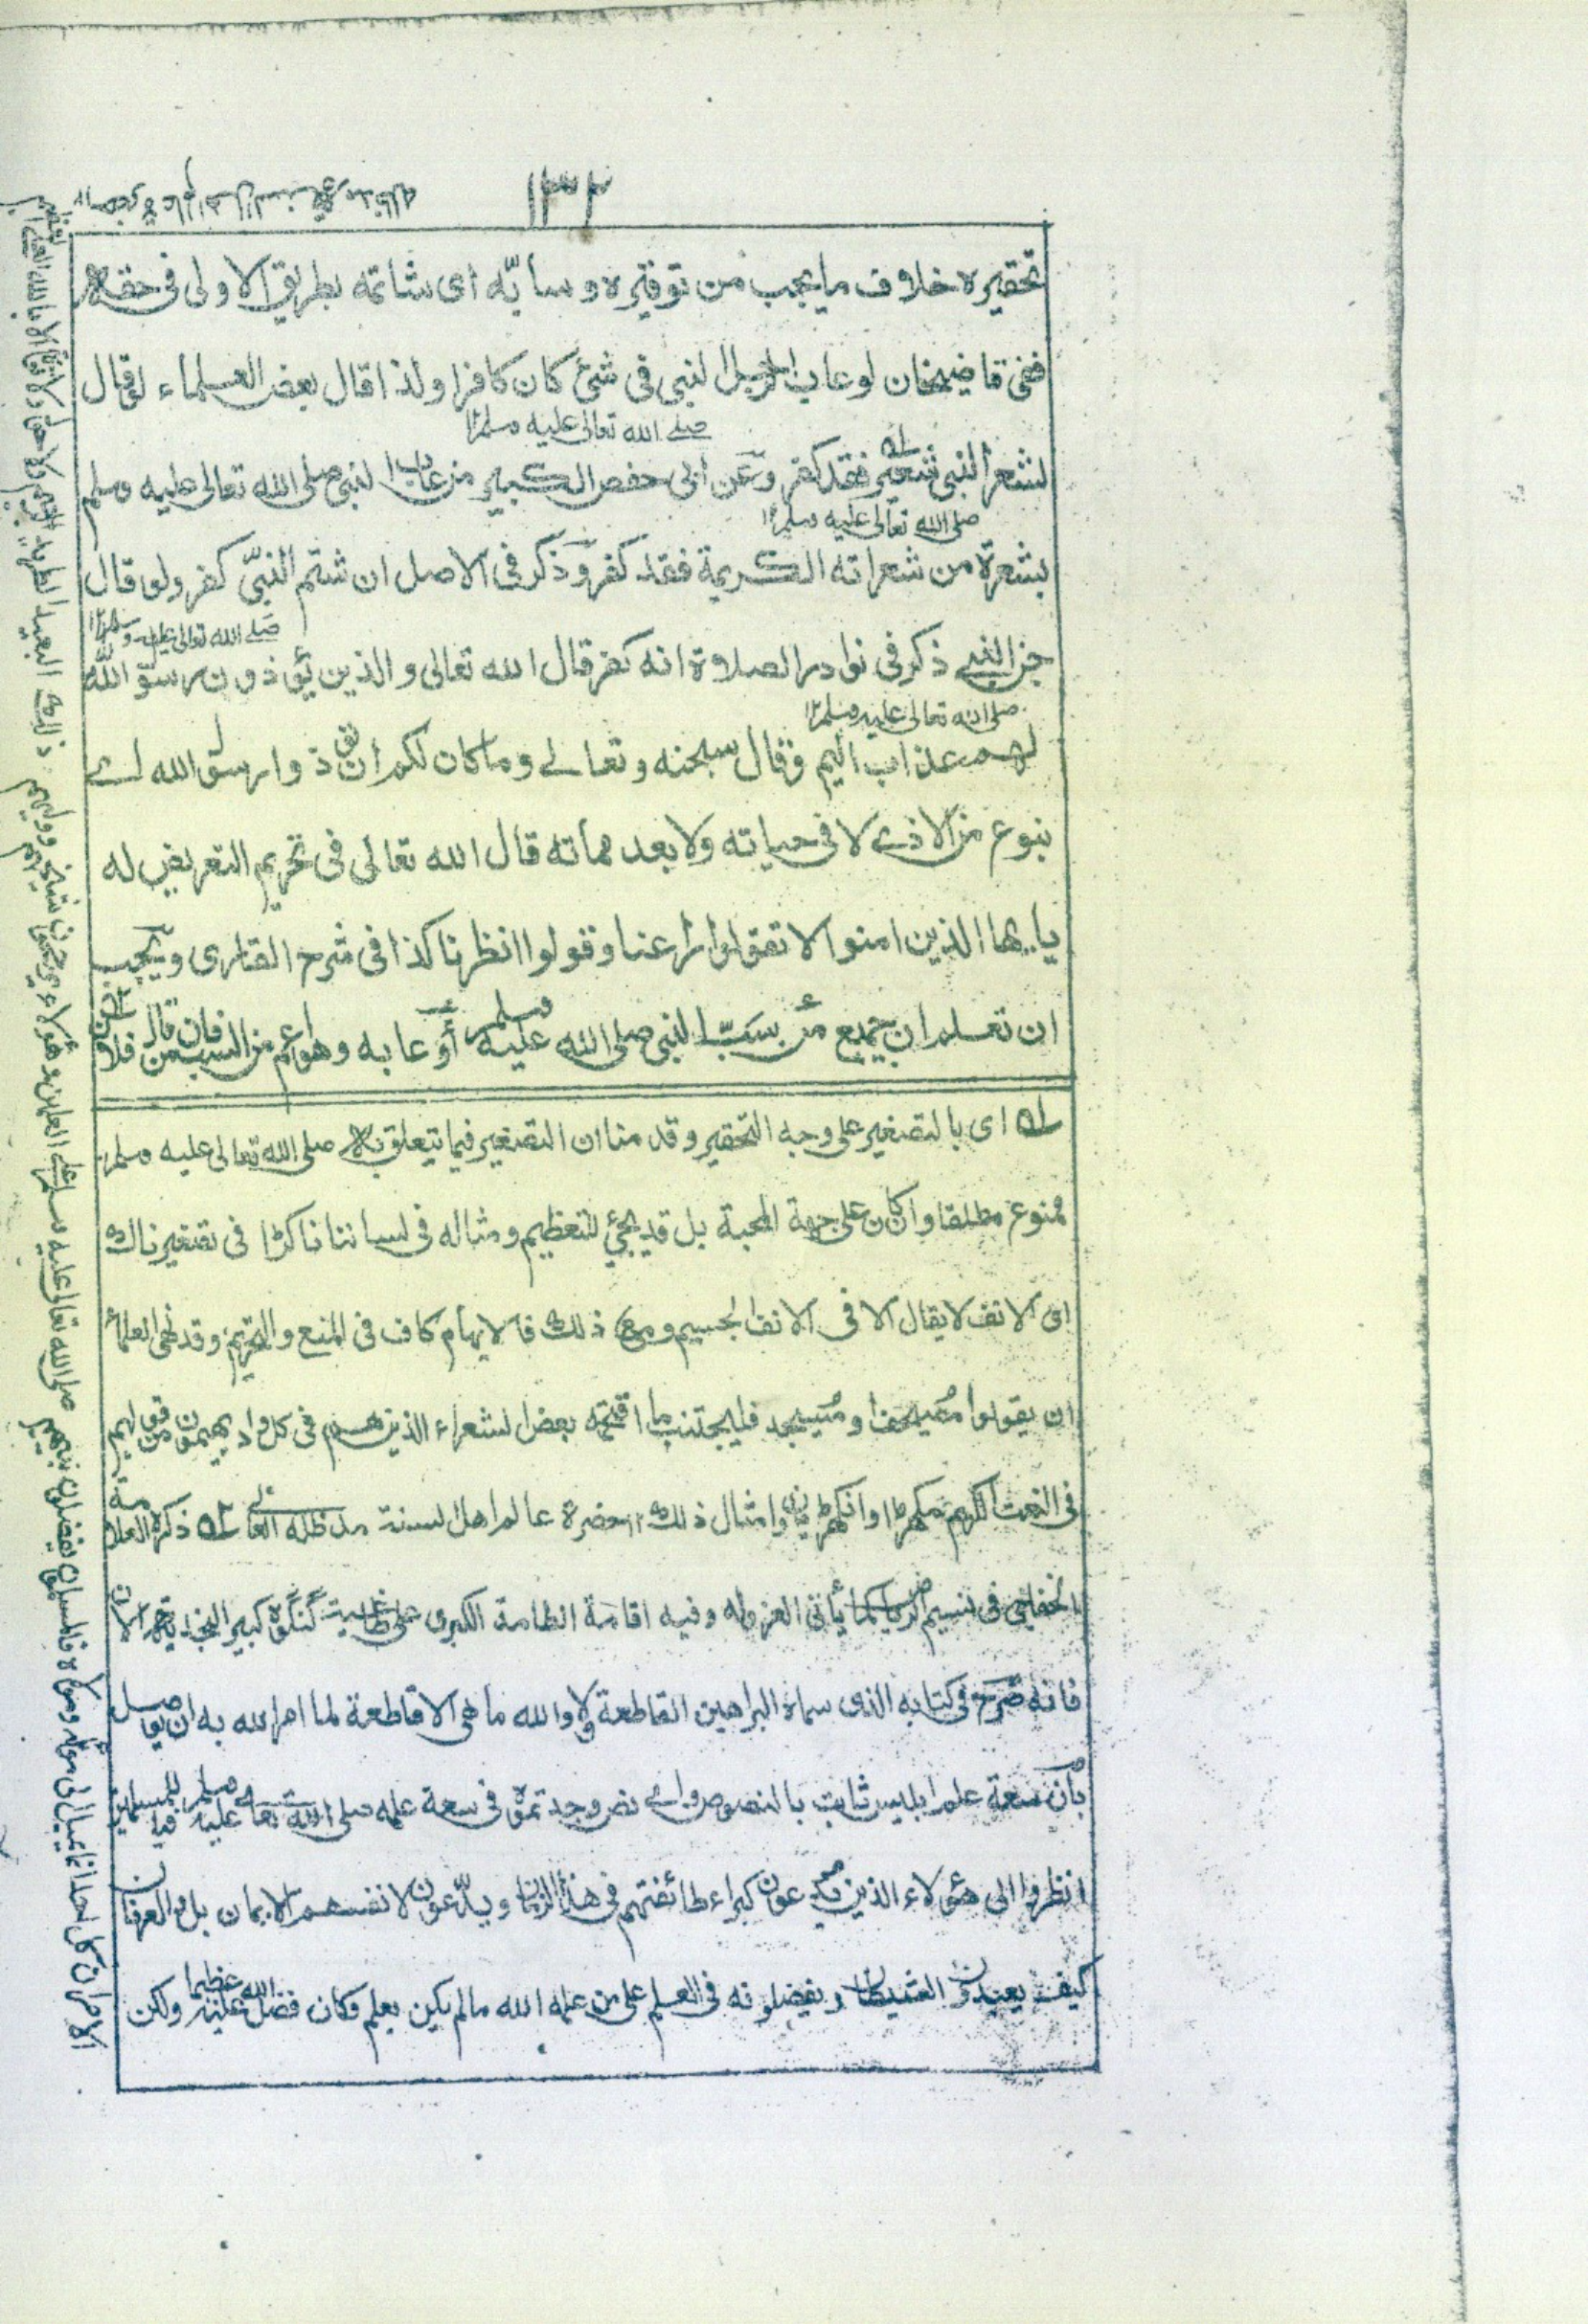 ١٣٤
تحقيره خلاف ما يجب من توقيره وسابّه اى شاتمه بطريق الاولى فى حقه
ففى قاضيخان لو عاب الرجل النبى فى شئ كان كافرا ولذا قال بعض العلماء لو قال
صلى الله تعالى عليه وسلم ١٢
لشعر النبى شعير فقد كفر وعن ابى حفص الكبير من عاب النبى صلى الله تعالى عليه وسلم
صلى الله تعالى عليه وسلم ١٢
بشعرة من شعراته الكريمة فقد كفر وذكر فى الاصل ان شتم النبىّ كفر ولو قال
صلى الله تعالى عليه وسلم ١٢
جن النبى ذكر فى نوادر الصلاوة انه كفر قال الله تعالى والذين يؤذون رسول الله
صلى الله تعالى عليه وسلم ١٢
لهم عذاب اليم وقال سبحنه وتعالى وما كان لكم ان تؤذوا رسول الله اے
بنوع من الاذے لا فى حياته ولا بعد مماته قال الله تعالى فى تحريم التعريض له
يايها الذين امنوا لا تقولوا راعنا وقولوا انظرنا كذا فى شرح القارى ويجب
ان تعلم ان جميع من سبّ النبى صلى الله عليه وسلم أو عابه وهو اعم من السب فان من قال فلان
له اى بالتصغير على وجه التحقير وقدمنا ان التصغير فيما يتعلق به صلى الله تعالى عليه وسلم
ممنوع مطلقا وان كان على جهة المحبة بل قد يجئ للتعظيم ومثاله فى لساننا ناكڑا فى تصغير ناك
اى الانف لا يقال الا فى الانف الجسيم ومع ذلك فالايهام كاف فى المنع والتحريم وقد نهى العلماء
ان يقولوا مُصيحفا ومُسيجد فليجتنب ما اقتحمه بعض الشعراء الذين هم فى كل واد يهيمون من قولهم
فى النعت الكريم مكهڑا وانكهڑياں وامثال ذلك ١٢ حضرة عالم اهل السنة مد ظله العالى له ذكره العلامة
الخفاجى فى نسيم الرياض كما يأتى العزو له وفيه اقامة الطامة الكبرى على گنگوهى كبير
فانه صرّح فى كتابه الذى سماه البراهين القاطعة ولا والله ما هى الا قاطعة لما امر الله به ان يوصل
بأن سعة علم ابليس ثابت بالنصوص واے نص وجدتموه فى سعة علمه صلى الله تعالى عليه وسلم فيا للمسلمين
انظروا الى هؤلاء الذين يدعون كبراء طائفتهم فى هذا الزمان ويدّعون لانفسهم الايمان بل والعرفان
كيف يعبدون الشيطان ويفضلونه فى العلم على من علمه الله ما لم يكن يعلم وكان فضل الله عليه عظيما ولكن